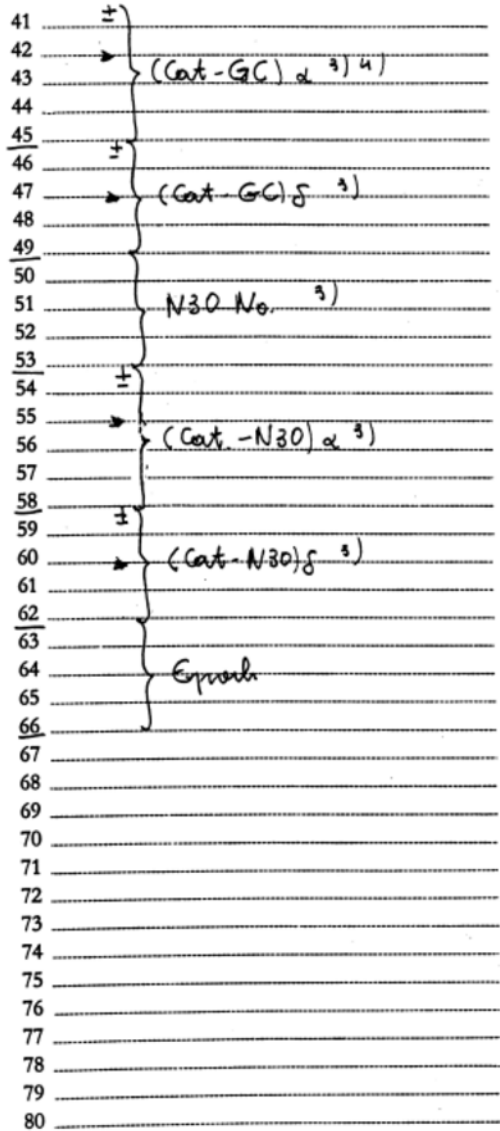 ±
41
42 (Cat-GC) α 3) 4)
43
44
45
±
46
47 (Cat-GC) δ 3)
48
49
50
51 N30 No. 3)
52
53
±
54
55
56 (Cat.-N30) α 3)
57
58
±
59
60 (Cat-N30) δ 3)
61
62
63
64 Epoch
65
66
67
68
69
70
71
72
73
74
75
76
77
78
79
80